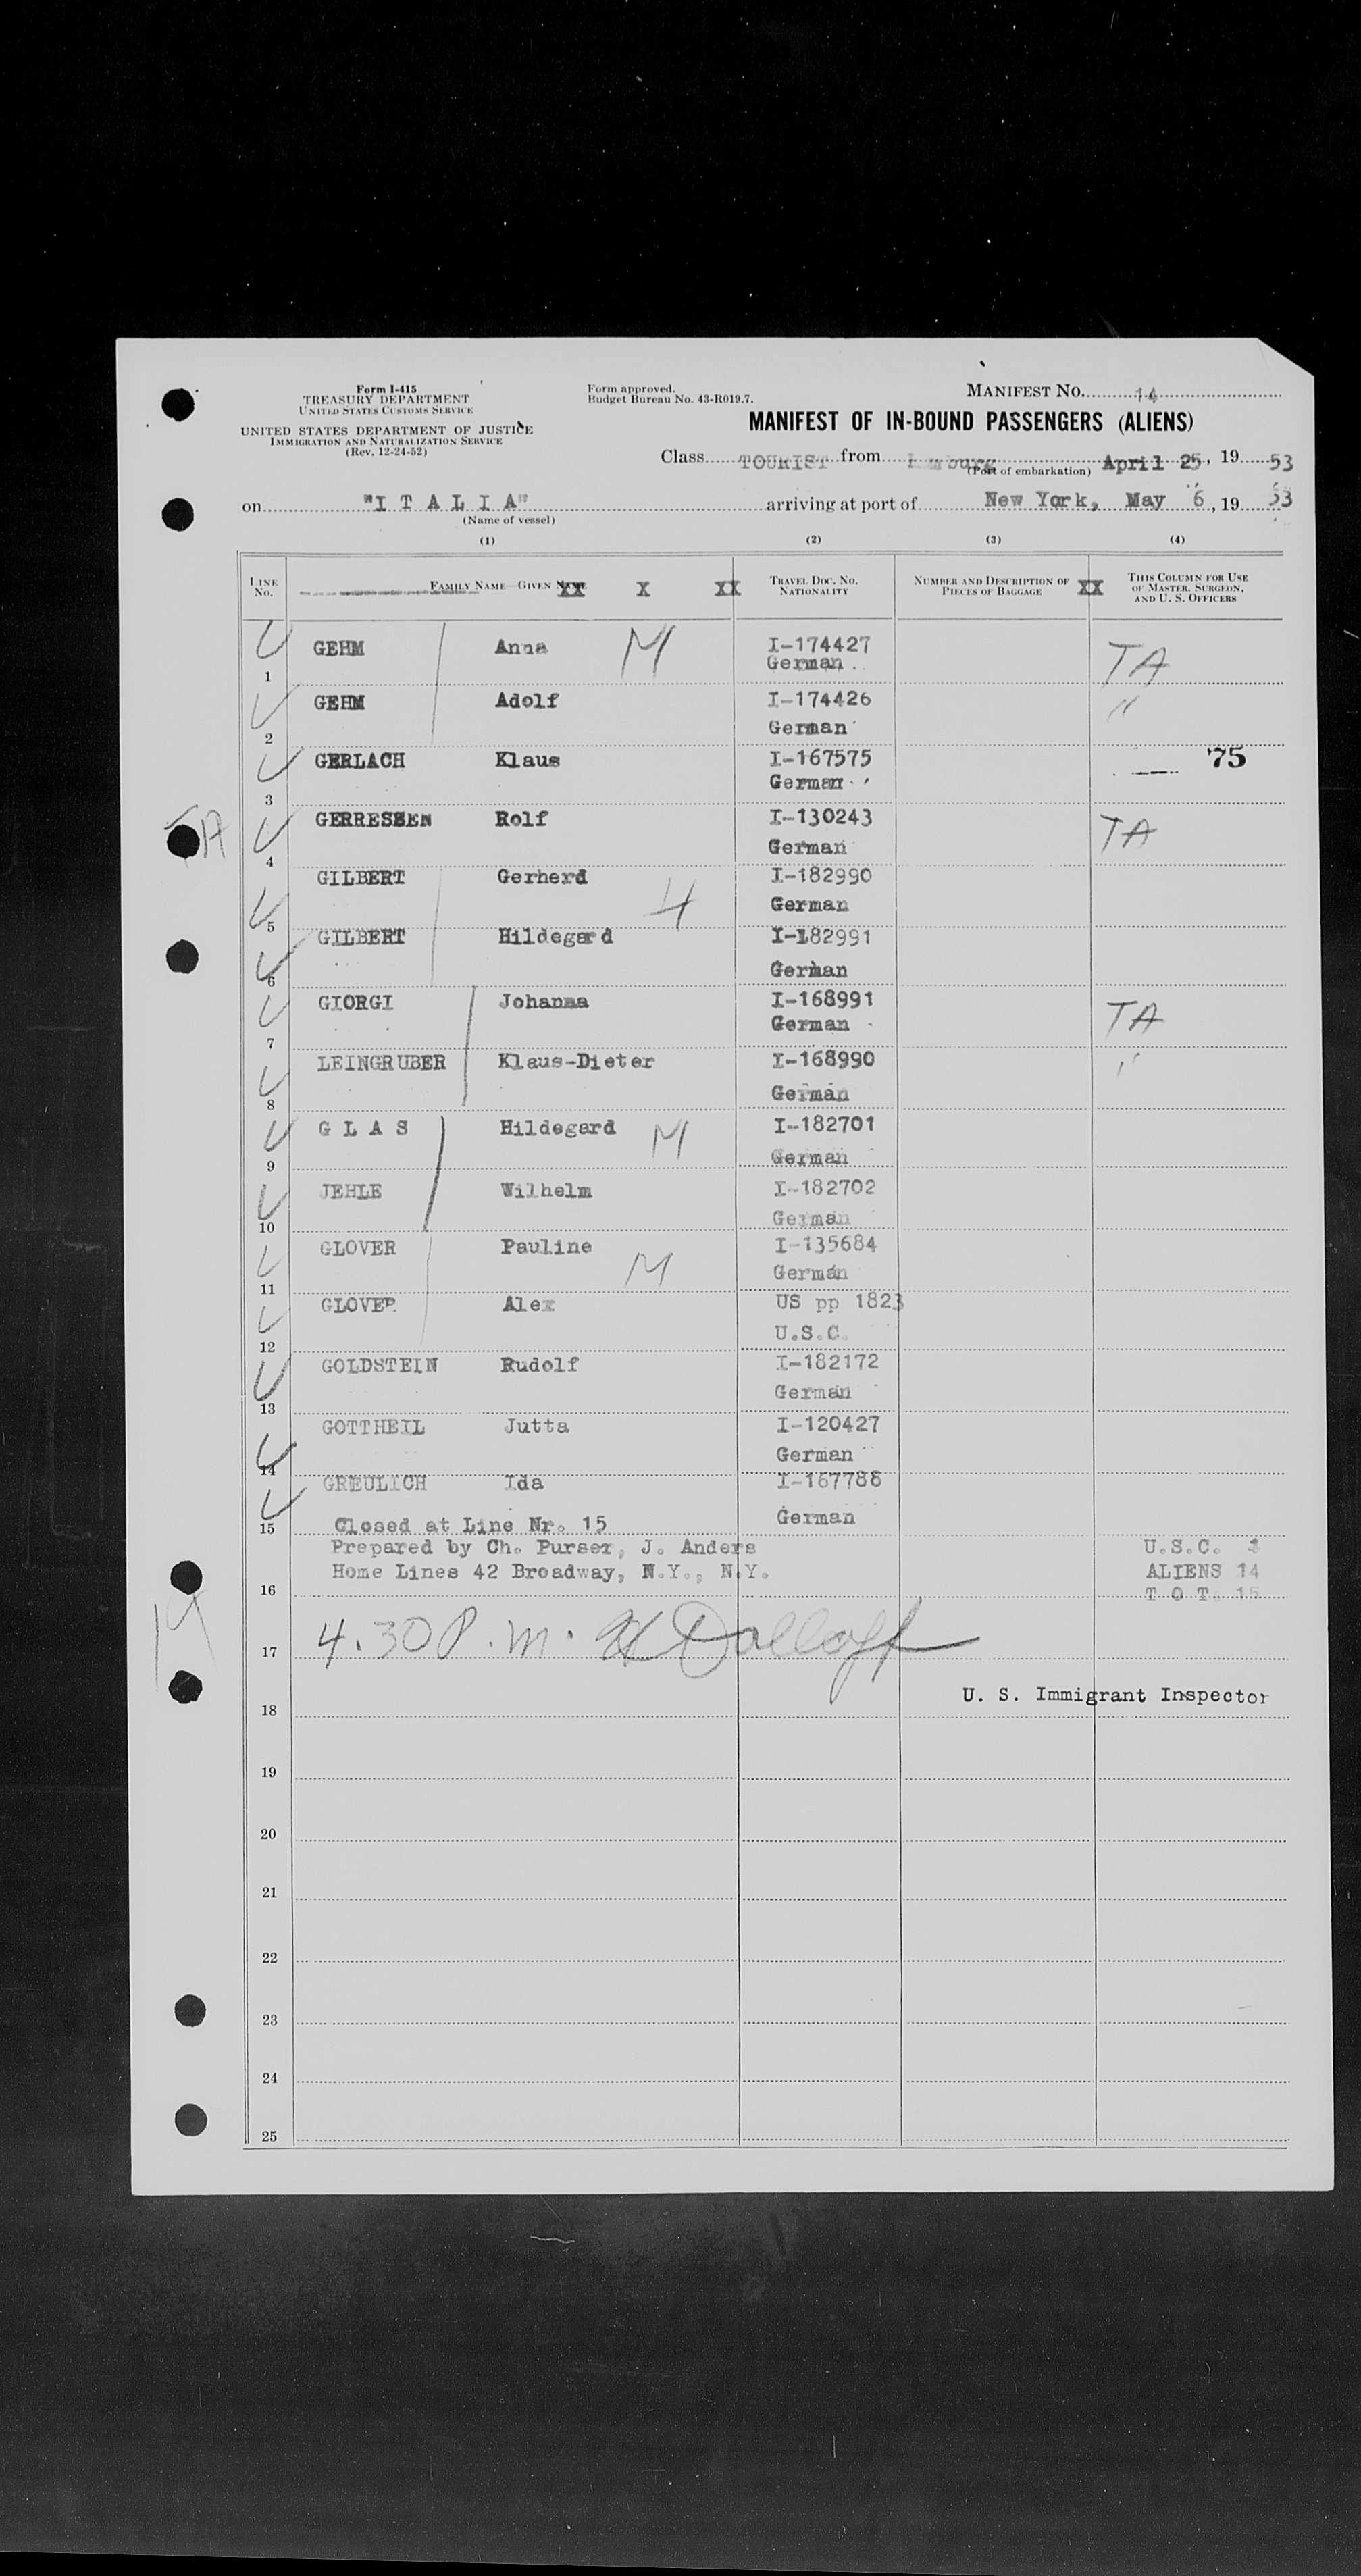 Form I-415
TREASURY DEPARTMENT
UNITED STATES CUSTOMS SERVICE
UNITED STATES DEPARTMENT OF JUSTICE
IMMIGRATION AND NATURALIZATION SERVICE
(Rev. 12-24-52)
Form approved.
Budget Bureau No. 43-R019.7.
MANIFEST NO. 14
MANIFEST OF IN-BOUND PASSENGERS (ALIENS)
Class TOURIST from (Port of embarkation) April 25, 19 53
on "I T A L I A" arriving at port of New York, May 6, 19 53
(Name of vessel)
(1) (2) (3) (4)
LINE NO. FAMILY NAME—GIVEN NAME XX X XX TRAVEL DOC. NO. NATIONALITY NUMBER AND DESCRIPTION OF PIECES OF BAGGAGE XX THIS COLUMN FOR USE OF MASTER, SURGEON, AND U. S. OFFICERS
1 GEHM Anna M I-174427 German TA
2 GEHM Adolf I-174426 German "
3 GERLACH Klaus I-167575 German 75
TA 4 GERRESSEN Rolf I-130243 German TA
5 GILBERT Gerherd H I-182990 German
6 GILBERT Hildegard I-182991 German
7 GIORGI Johanna I-168991 German TA
8 LEINGRUBER Klaus-Dieter I-168990 German "
9 G L A S Hildegard M I-182701 German
10 JEHLE Wilhelm I-182702 German
11 GLOVER Pauline M I-135684 German
12 GLOVER Alex US pp 1823 U.S.C.
13 GOLDSTEIN Rudolf I-182172 German
14 GOTTHEIL Jutta I-120427 German
15 GREULICH Ida I-167788 German
Closed at Line Nr. 15
Prepared by Ch. Purser, J. Anders U.S.C. 1
Home Lines 42 Broadway, N.Y., N.Y. ALIENS 14
16 T O T. 15
14
17 4.30 P.m. Dolloff
U. S. Immigrant Inspector
18
19
20
21
22
23
24
25